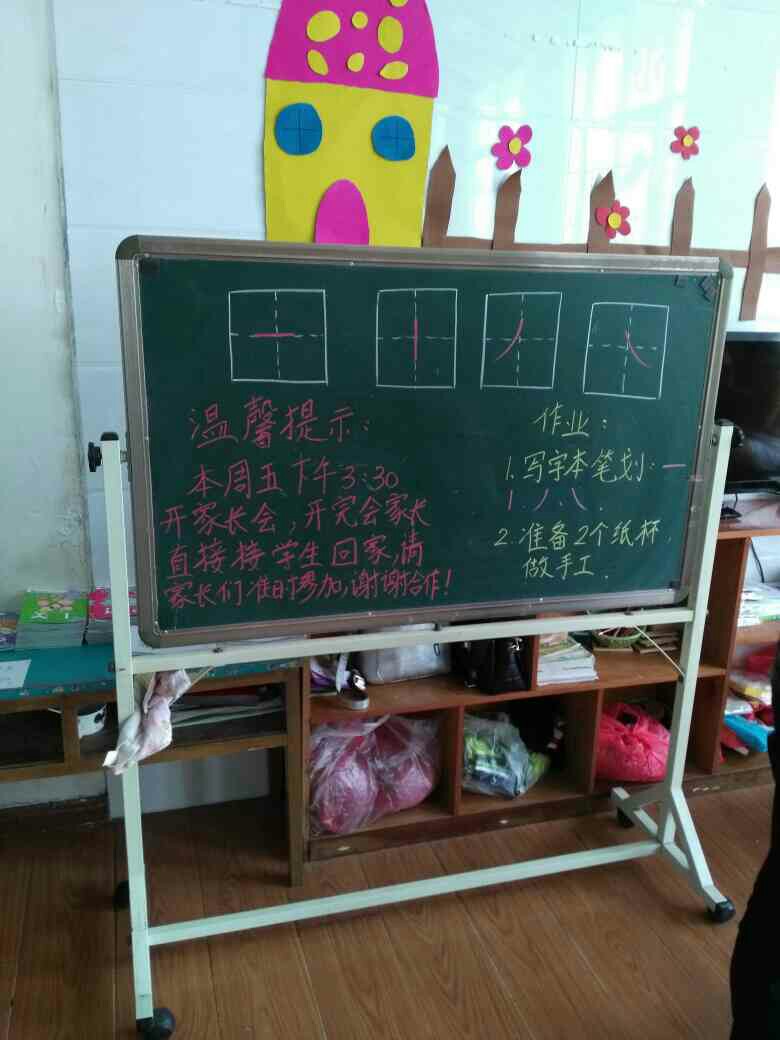 一 丨 丿 ㇏
温馨提示：
本周五下午3:30
开家长会，开完会家长
直接接学生回家，请
家长们准时参加，谢谢合作！
作业：
1.写字本笔划：一
丨、丿、㇏.
2.准备2个纸杯，
做手工.